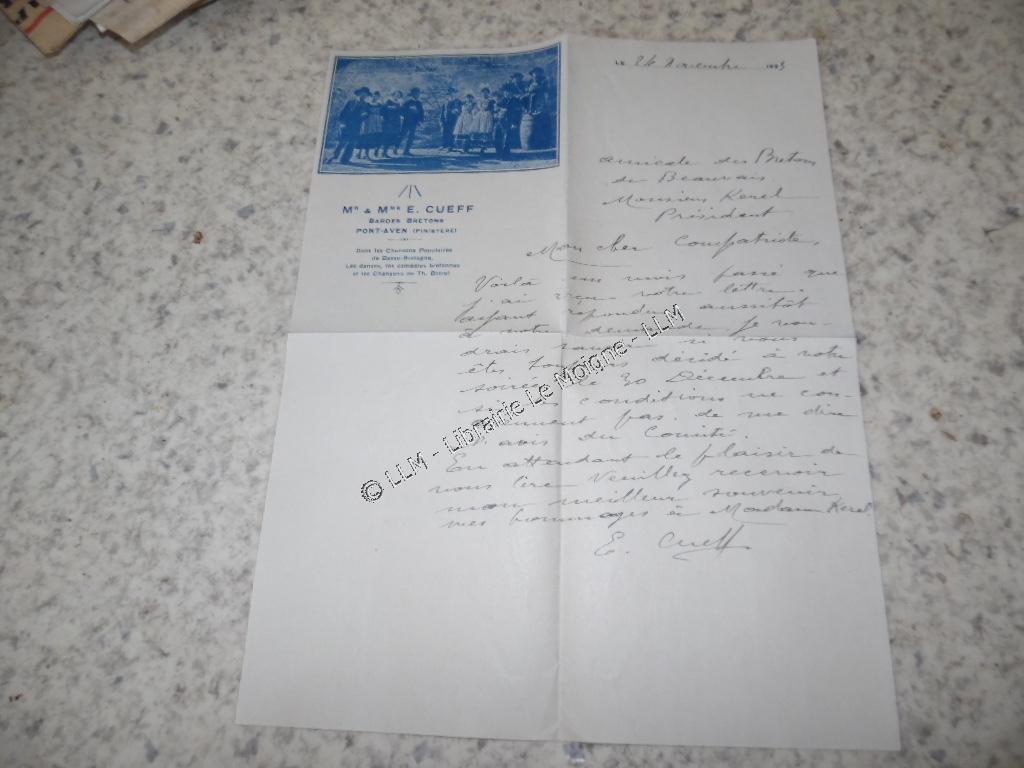 Le 24 Novembre 193
Mr & Mme E. CUEFF
BARDES BRETONS
PONT-AVEN (FINISTÈRE)
Dans les Chansons Populaires
de Basse-Bretagne,
Les danses, les comédies bretonnes
et les Chansons de Th. Botrel
amicale des Bretons
de Beauvais
Monsieur Kerel
Président
Mon cher Compatriote,
Voilà un mois passé que
j'ai reçu votre lettre.
ayant répondu aussitôt
à votre demande je vou-
drais savoir si vous
êtes toujours décidé à votre
soirée de 30 Décembre et
si conditions ne con-
viennent pas de me dire
l'avis du Comité.
En attendant le plaisir de
vous lire Veuillez recevoir
mon meilleur souvenir
mes hommages à Madame Kerel
E. Cueff
© LLM - Librairie Le Moigne - LLM